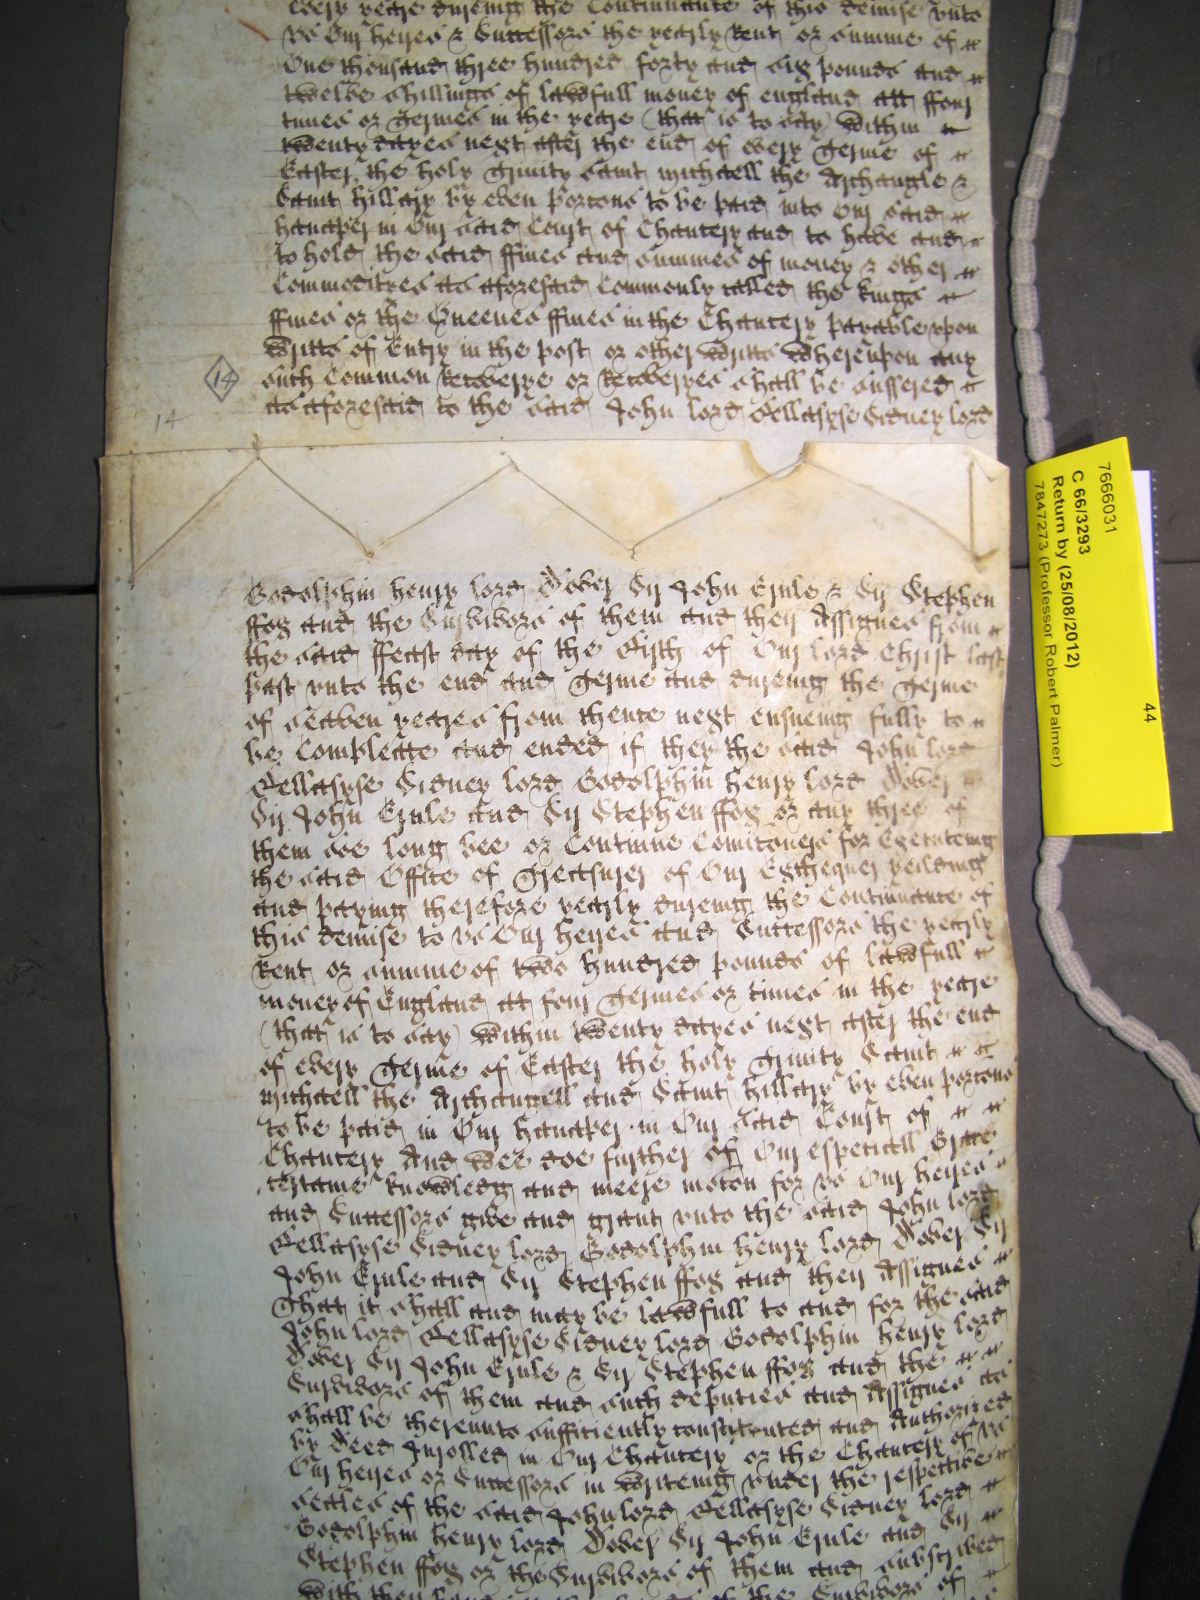 every yeare dureing the Continuance of this demise unto
us Our heires & Successors the yearly Rent or summe of
One thousand three hundred forty and six pounds and
twelve shillings of lawfull money of england att ffour
times or Termes in the yeare (that is to say) within
twenty dayes next after the end of every Terme of
Easter the holy Trinity Saint Michaell the Archangle &
Saint hillary by even porcons to be paid into Our said
hanaper in Our said Court of Chancery and to have and
to hold the said ffines and summes of money & other
Commodityes as aforesaid Commonly called the kings
ffines or the Queenes ffines in the Chancery payable upon
Writts of Entry in the post or other Writts Whereupon any
such Common Recoverye or Recoveryes shall be suffered
as aforesaid to the said John Lord Bellasyse Sidney Lord
14
14
Godolphin henry Lord Dover Sir John Ernle & Sir Stephen
ffox and the Survivors of them and their Assignes from
the said ffeast day of the Birth of Our Lord Christ last
past unto the end and Terme and dureing the Terme
of seaven yeares from thence next ensueing fully to
be Compleate and ended if they the said John Lord
Bellasyse Sidney Lord Godolphin henry Lord Dover
Sir John Ernle and Sir Stephen ffox or any three of
them soe long bee or Continue Comitoners for Executeing
the said Office of Treasurer of Our Exchequer yeilding
and paying therefore yearly dureing the Continuance of
this demise to us Our heires and Successors the yearly
Rent or summe of two hundred pounds of lawfull
money of England at four Termes or times in the yeare
(that is to say) within twenty dayes next after the end
of every Terme of Easter the holy Trinity Saint
Michaell the Archangell and Saint hillary by even porcons
to be paid in Our hanaper in Our said Court of
Chancery And Wee doe further of Our especiall Grace
certaine knowledg and meere mocon for us Our heires
and Successors give and grant unto the said John Lord
Bellasyse Sidney Lord Godolphin henry Lord Dover Sir
John Ernle and Sir Stephen ffox and their Assignes
That it shall and may be lawfull to and for the said
John Lord Bellasyse Sidney Lord Godolphin henry Lord
Dover Sir John Ernle & Sir Stephen ffox and the
Survivors of them and such deputies and Assignes as
shall be thereunto sufficiently constituted and Authorized
by Deed Inrolled in Our Chancery or the Chancery of us
Our heires or Successors in writeing under the respective
seales of the said John Lord Bellasyse Sidney Lord
Godolphin henry Lord Dover Sir John Ernle and Sir
Stephen ffox or the Survivors of them and subscribed
with their of the Survivors of
7666031
C 66/3293
Return by (25/08/2012)
7847273 (Professor Robert Palmer)
44